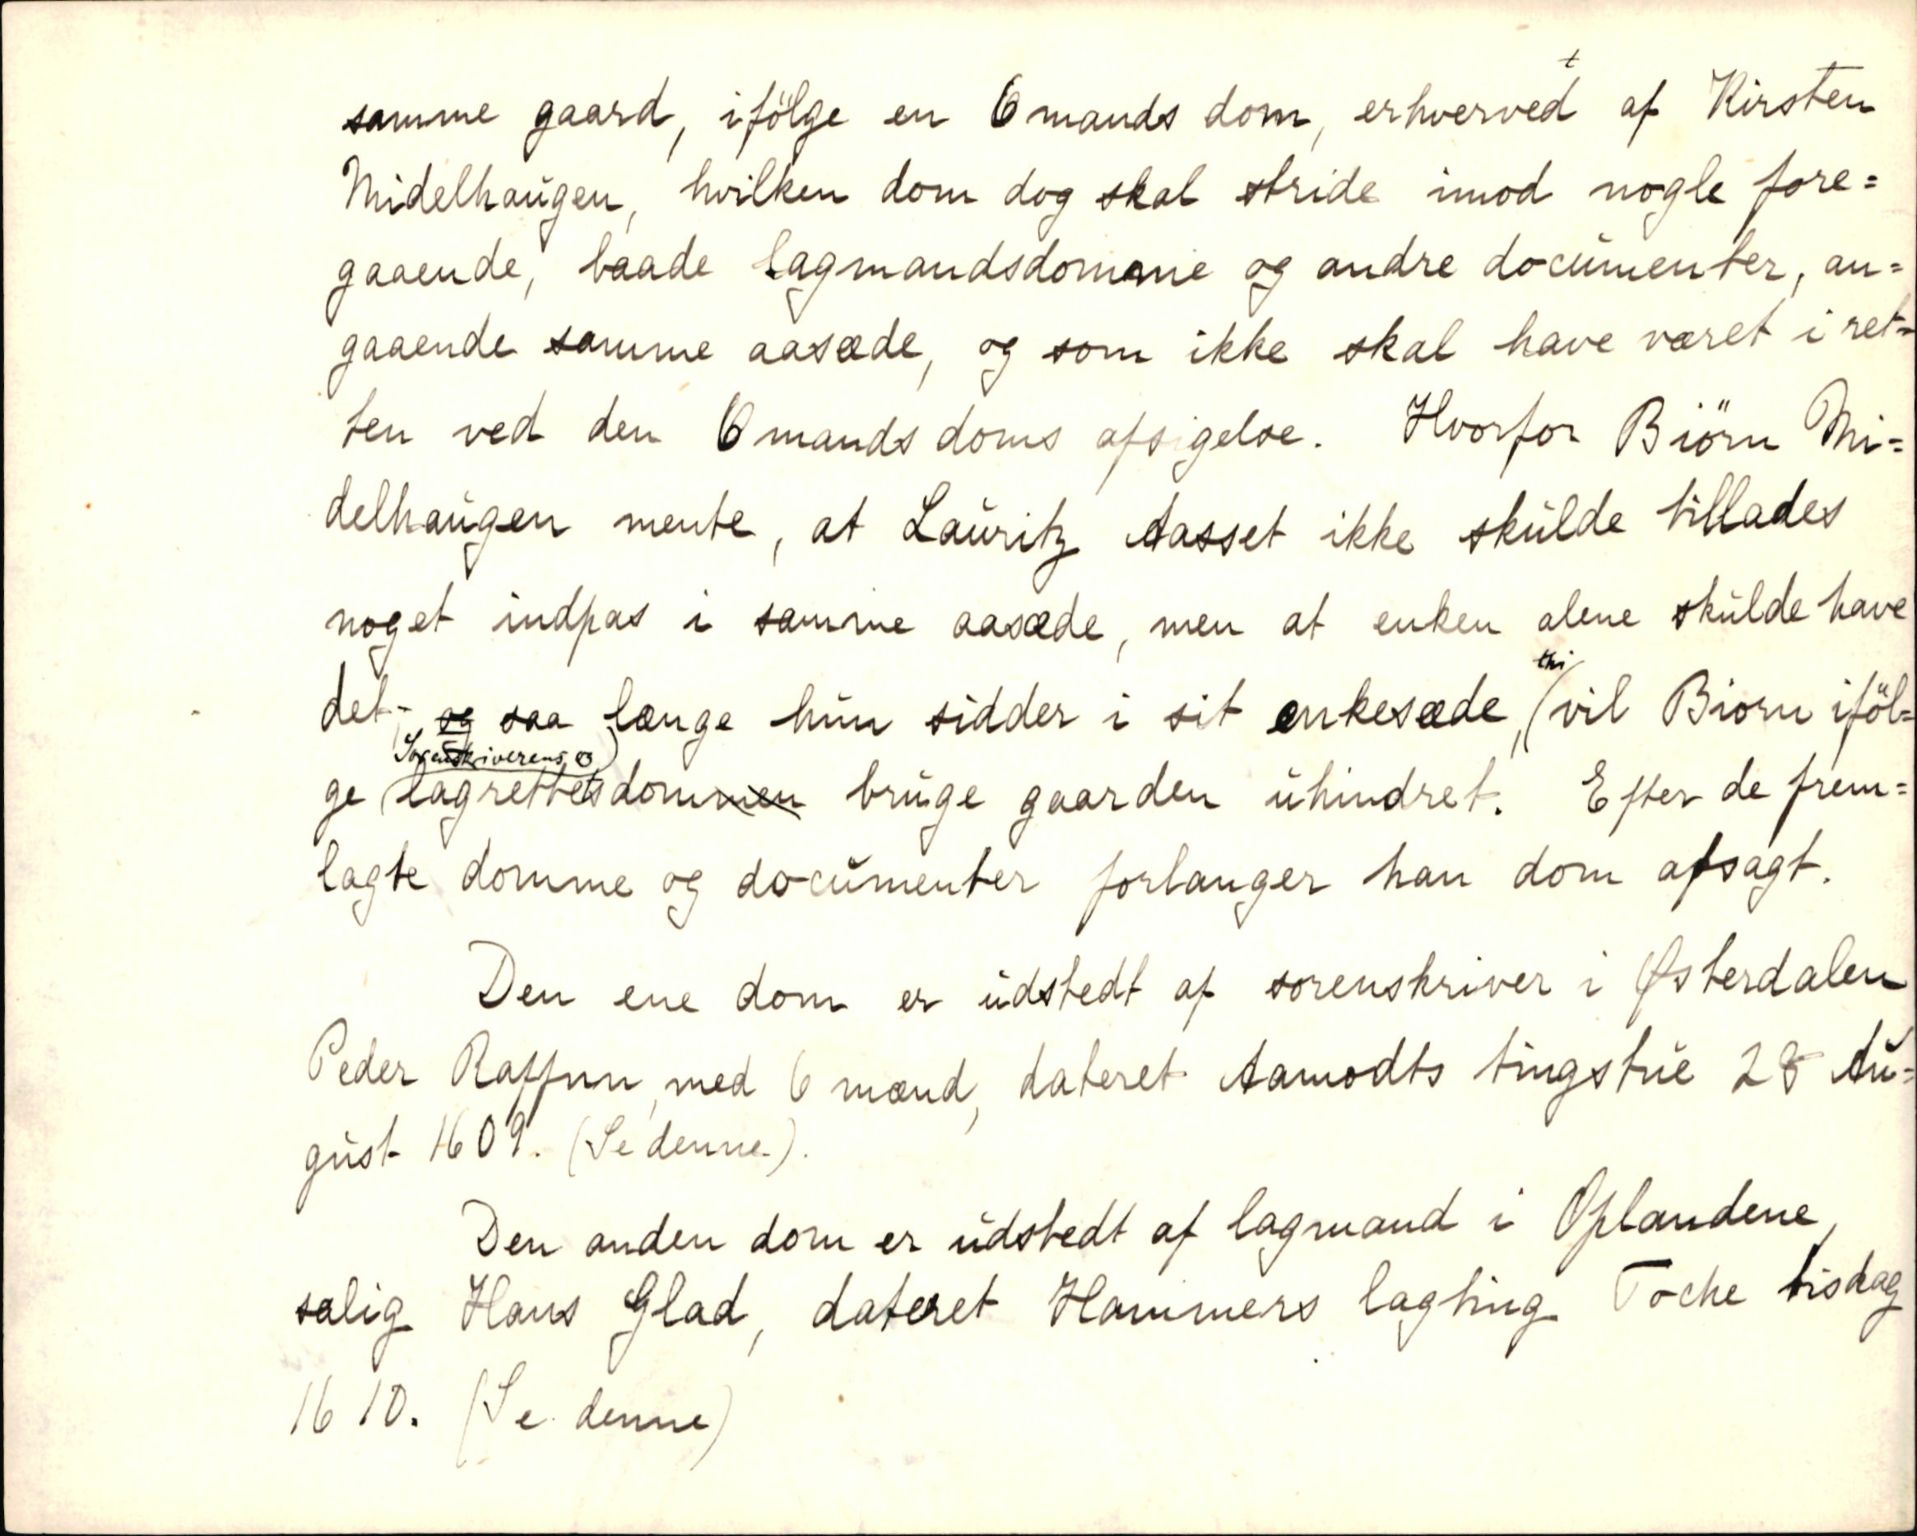 samme gaard, ifölge en 6 mands dom, erhvervedt af Kirsten
Midelhaugen, hvilken dom dog skal stride imod nogle fore=
gaaende, baade lagmandsdomme og andre documenter, an=
gaaende samme aasæde, og som ikke skal have været i ret=
ten ved den 6 mands doms afsigelse. Hvorfor Biörn Mi=
delhaugen mente, at Lauritz Aasset ikke skulde tillades
noget indpas i samme aasæde, men at enken alene skulde have
det, og saa længe hun sidder i sit enkesæde, (thi vil Biorn iföl=
ge Sorenskriverens o lagrettesdommen bruge gaarden uhindret. Efter de frem=
lagte domme og documenter forlanger han dom afsagt.
Den ene dom er udstedt af sorenskriver i Østerdalen
Peder Raffnn, med 6 mænd, dateret Aamodts tingstue 28 Au=
gust 1609. (Se denne).
Den anden dom er udstedt af lagmand i Oplandene,
salig Hans Glad, dateret Hammers lagting Toche tisdag
1610. (Se denne)